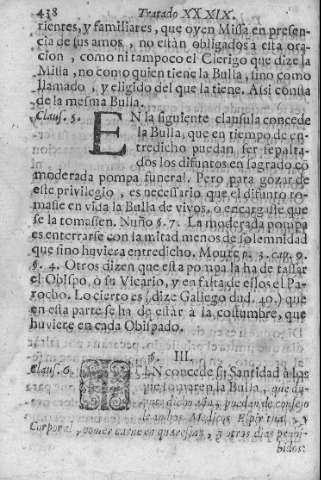 438 Tratado XXXIX.
rientes, y familiares, que oyen Missa en presen-
cia de sus amos, no están obligados à esta ora-
cion, como ni tampoco el Clerigo que dize la
Missa, no como quien tiene la Bulla, sino como
llamado, y elegido del que la tiene. Assi consta
de la mesma Bulla.
Claus. 5. EN la siguiente clausula concede
la Bulla, que en tiempo de en-
tredicho puedan ser sepulta-
dos los difuntos en sagrado cõ
moderada pompa funeral. Pero para gozar de
este privilegio, es necessario que el difunto to-
masse en vida la Bulla de vivos, ò encargasse que
se la tomassen. Nuño §. 7. La moderada pompa
es enterrarse con la mitad menos de solemnidad
que sino huviera entredicho. p. 3. cap. 9.
§. 4. Otros dizen que esta pompa la ha de tassar
el Obispo, ò su Vicario, y en falta de ellos el Pa-
rocho. Lo cierto es (dize Gallego dud. 40.) que
en esta parte se ha de estar à la costumbre, que
huviere en cada Obispado.
§. III.
Claus. 6. ITEN concede su Santidad à los
que tomaren la Bulla, que du-
puedan de consejo
de ambos Medicos Espiritual, y
Corporal, comer carne en quaresma, y otros dias prohi-
bidos: